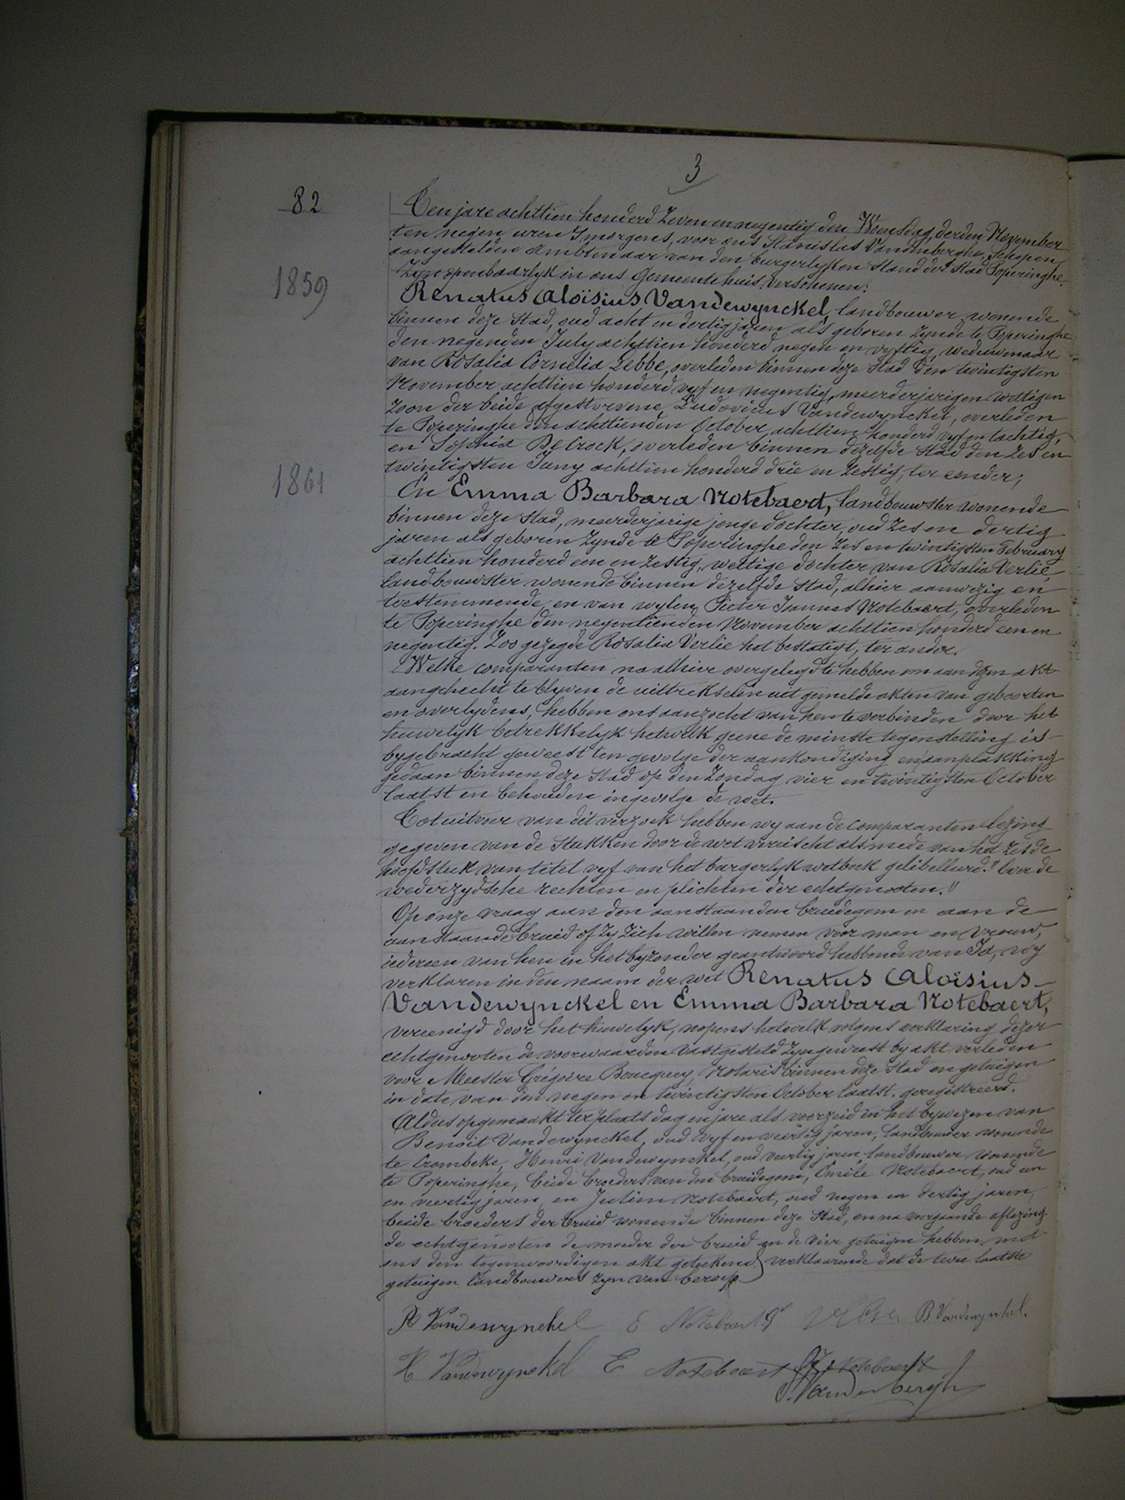 3
82
Ten jare achttien honderd zeven en negentig den Woensdag, derden November
ten negen uren 's morgens, voor ons Stanislas Vandenberghe, Schepen
aangestelden Ambtenaar van den burgerlyken Stand der Stad Poperinghe
Zyn openbaarlyk in ons Gemeentehuis verschenen:
1859
Renatus Aloïsius Vandewynckel, landbouwer, wonende
binnen deze Stad, oud acht en dertig jaren als geboren zynde te Poperinghe
den negenden July achttien honderd negen en vyftig, weduwnaar
van Rosalia Cornelia Lebbe, overleden binnen deze Stad den twintigsten
November achttien honderd vyf en negentig, meerderjarigen wettigen
zoon der beide afgestorvene, Ludovicus Vandewynckel, overleden
te Poperinghe den achttienden October achttien honderd vyf en tachtig,
en Sophia De Crock, overleden binnen dezelfde Stad den zes en
twintigsten Juny achttien honderd drie en zestig, ter eender;
1861
En Emma Barbara Notebaert, landbouwster wonende
binnen deze Stad, meerderjarige jonge dochter, oud zes en dertig
jaren als geboren zynde te Poperinghe den zes en twintigsten February
achttien honderd een en zestig, wettige dochter van Rosalia Verlie,
landbouwster wonende binnen dezelfde Stad, alhier aanwezig en
toestemmende, en van wylen Pieter Joannes Notebaert, overleden
te Poperinghe den negentienden November achttien honderd een en
negentig. Zoo gezegde Rosalia Verlie het bestatigt, ter ander.
Welke comparanten na alhier overgelegd te hebben om aan dezen akt
aangehecht te blyven de uittrekselen uit gemelde akten van geboorten
en overlydens, hebben ons aanzocht van hen te verbinden door het
huwelyk betrekkelyk hetwelk geene de minste tegenstelling is
bygebracht geweest ten gevolge der aankondiging en aanplakking
gedaan binnen deze Stad op den Zondag vier en twintigsten October
laatst en behouden ingevolge de wet.
Tot uitvoer van dit verzoek hebben wy aan de comparanten lezing
gegeven van de stukken door de wet vereischt alsmede van het zesde
hoofdstuk van titel vyf van het burgerlyk wetboek getitelleerd: "Over de
wederzydsche rechten en plichten der echtgenooten."
Op onze vraag aan den aanstaanden bruidegom en aan de
aanstaande bruid of zy zich willen nemen voor man en vrouw,
iedereen van hen in het byzonder geantwoord hebbende van Ja, wy
verklaren in den naam der wet Renatus Aloïsius
Vandewynckel en Emma Barbara Notebaert,
vereenigd door het huwelyk, nopens hetwelk volgens verklaring dezer
echtgenooten de voorwaarden vastgesteld zyn geweest by akt verleden
voor Meester Grégoire Boucquey, Notaris binnen deze Stad en getuigen
in date van den negen en twintigsten October laatst, geregistreerd.
Aldus opgemaakt ter plaats dag en jare als voorzeid in het bywezen van
Benoit Vandewynckel, oud vyf en veertig jaren, landbouwer wonende
te Crombeke, Henri Vandewynckel, oud veertig jaren landbouwer wonende
te Poperinghe, beide broeders van den bruidegom, Emile Notebaert, oud een
en veertig jaren, en Justien Notebaert, oud negen en dertig jaren,
beide broeders der bruid wonende binnen deze Stad, en na voorgaande aflezing
de echtgenooten de moeder der bruid en de vier getuigen hebben met
ons den tegenwoordigen akt geteekend, verklaarende dat de twee laatste
getuigen landbouwers zyn van beroep
R Vandewynckel E Notebaert B Vandewynckel.
H Vandewynckel E Notebaert J. Notebaert
S. Vandenberghe